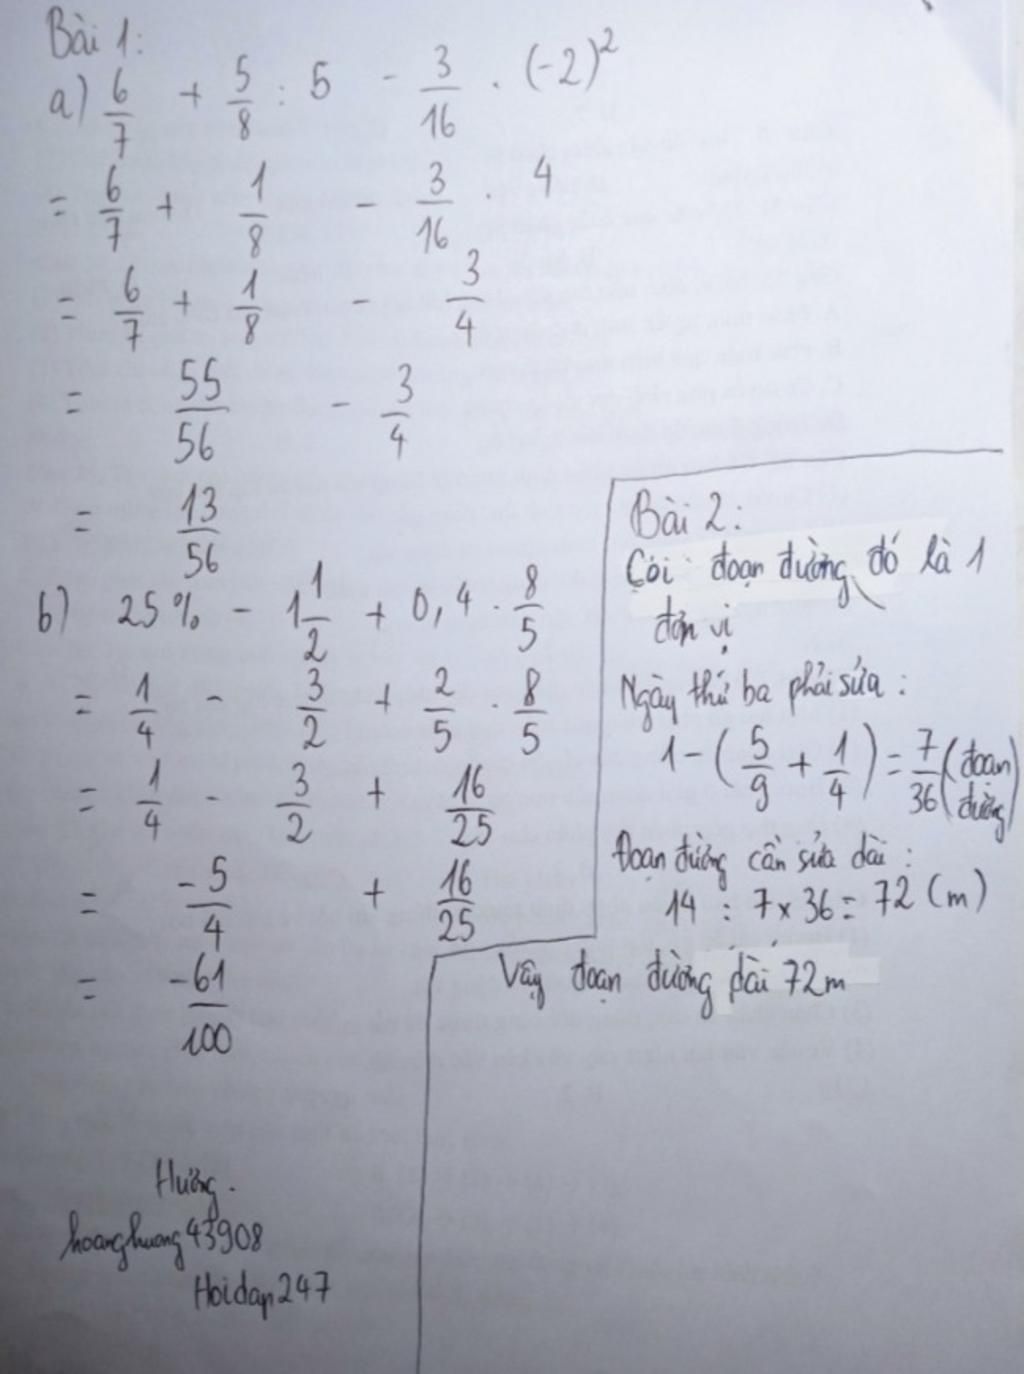 Bài 1:
a) 6/7 + 5/8 : 5 - 3/16 . (-2)²
= 6/7 + 1/8 - 3/16 . 4
= 6/7 + 1/8 - 3/4
= 55/56 - 3/4
= 13/56
b) 25% - 1 1/2 + 0,4 . 8/5
= 1/4 - 3/2 + 2/5 . 8/5
= 1/4 - 3/2 + 16/25
= -5/4 + 16/25
= -61/100
Bài 2:
Coi đoạn đường đó là 1
đơn vị
Ngày thứ ba phải sửa :
1 - (5/9 + 1/4) = 7/36 (đoạn
đường)
Đoạn đường cần sửa dài :
14 : 7 x 36 = 72 (m)
Vậy đoạn đường dài 72m
Hường.
hoanghuong43908
Hoidap247